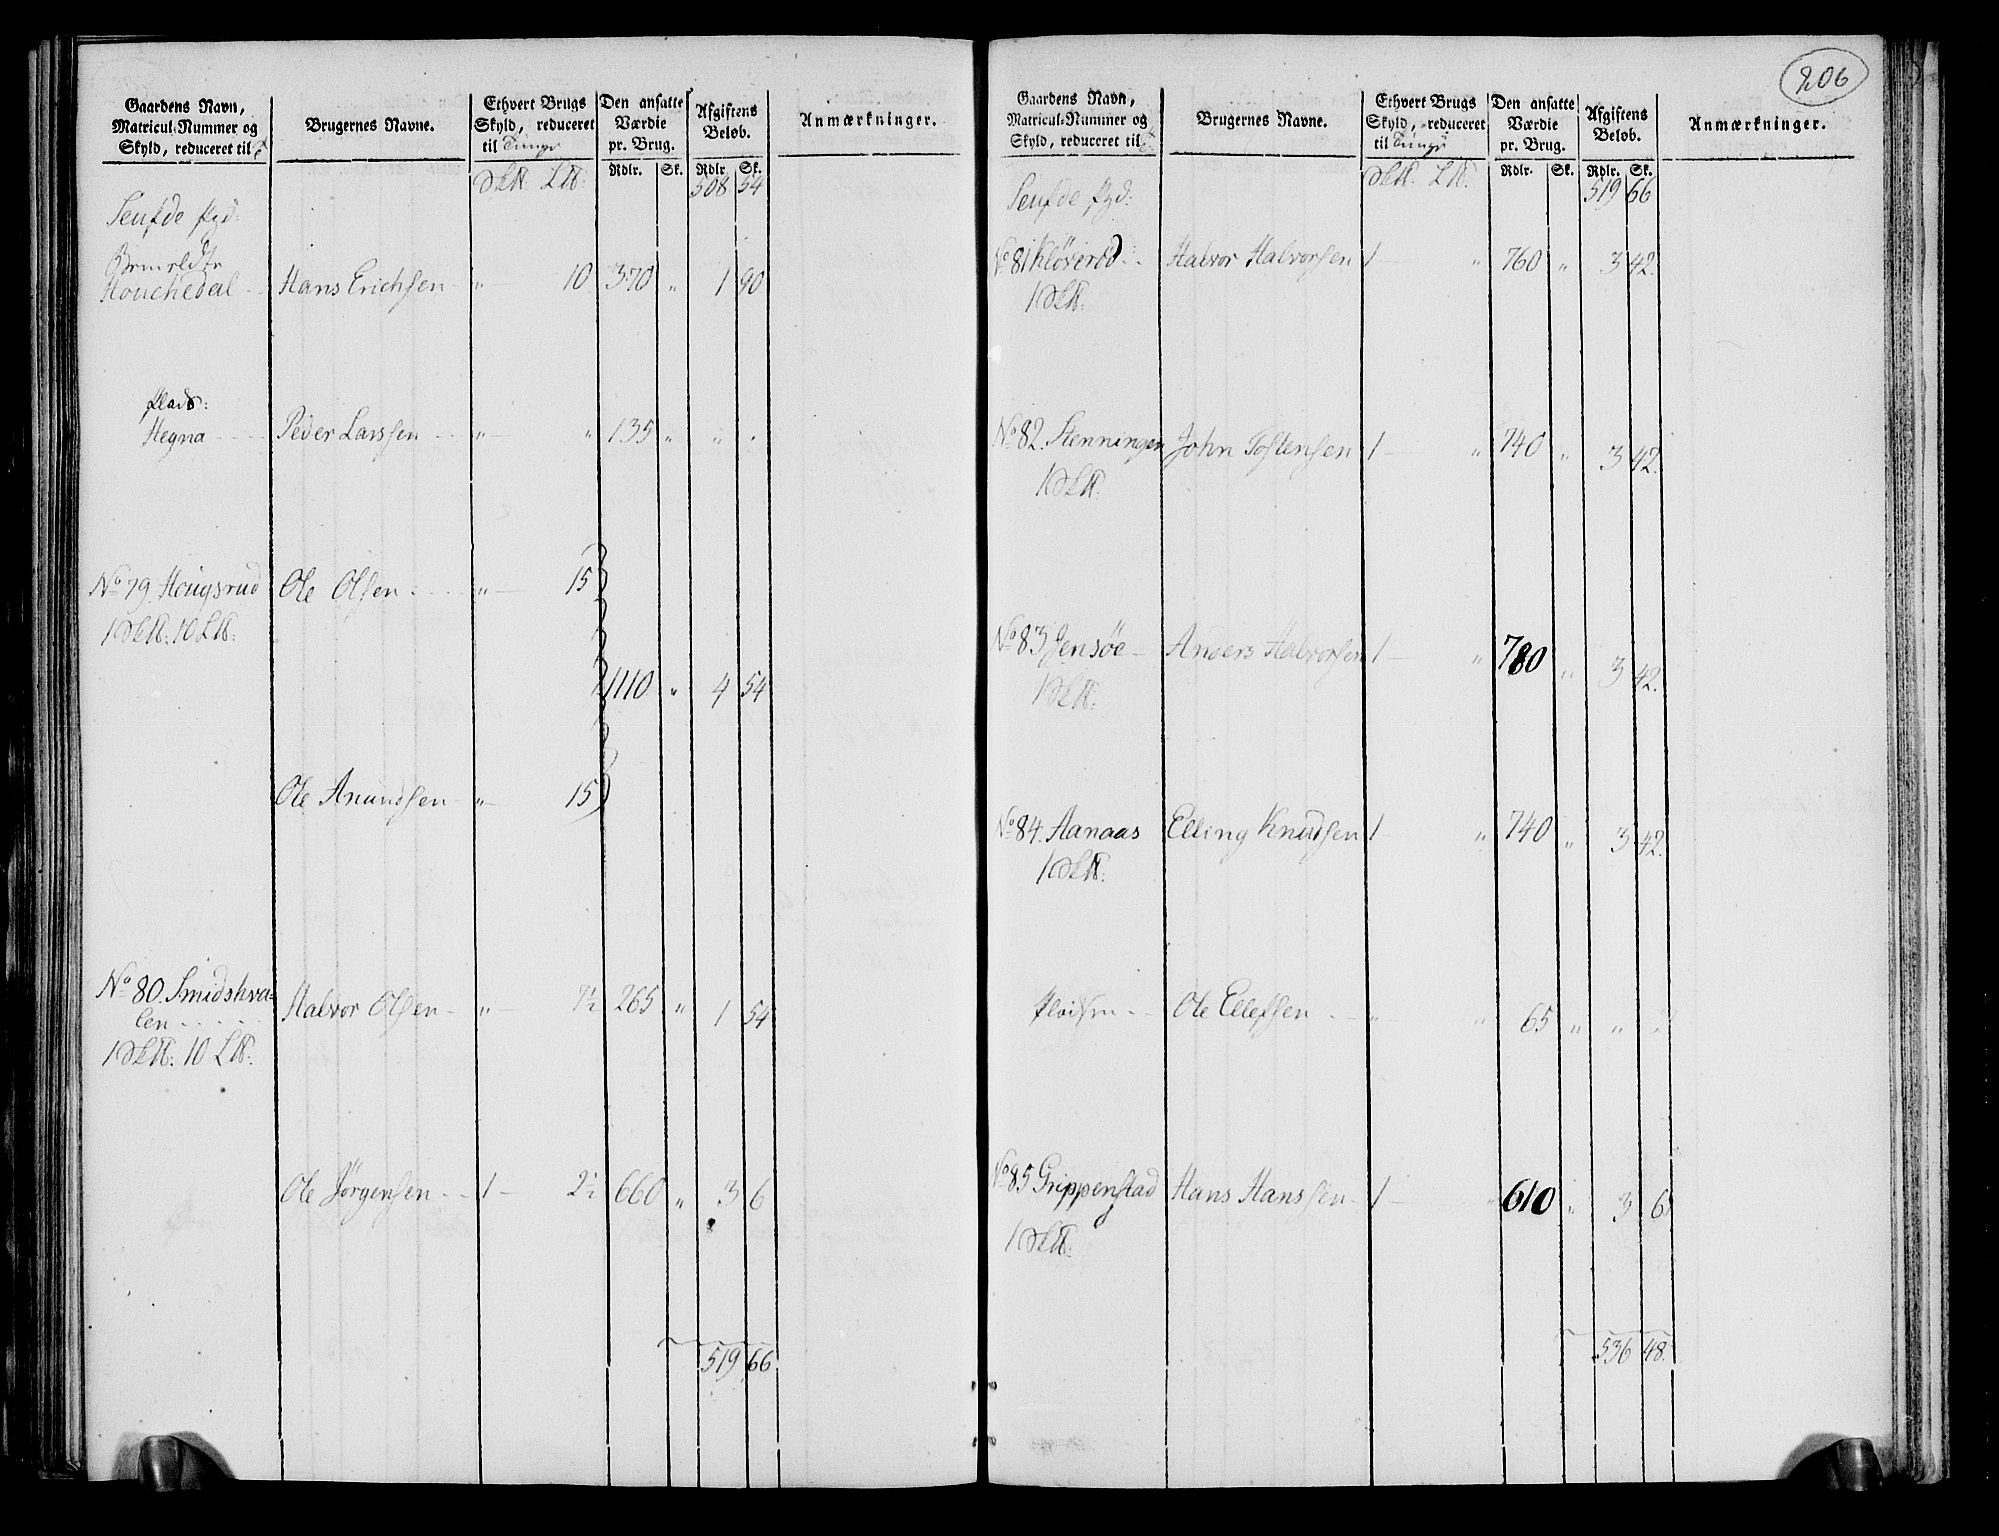 206
Gaardens Navn, Matricul-Nummer og Skyld, reduceret til
Brugernes Navne.
Ethvert Brugs Skyld, reduceret til Tunge
Den ansatte Værdie pr. Brug.
Afgiftens Beløb.
Anmærkninger.
Rdlr. Sk. Rdlr. Sk.
508 54
Houchedal Hans Erichsen " 10 370 " 1 90
Plads:
Hegna Peder Larssen " " 135 " " "
No 79. Hougsrud Ole Olsen " 15
1 10
1110 " 4 54
Ole Anundsen " 15
No 80. Smidshva= Halvor Olsen " 7½ 265 " 1 54
len
1 10
Ole Jørgensen 1 2½ 660 " 3 6
519 66
Gaardens Navn, Matricul-Nummer og Skyld, reduceret til
Brugernes Navne.
Ethvert Brugs Skyld, reduceret til Tunge
Den ansatte Værdie pr. Brug.
Afgiftens Beløb.
Anmærkninger.
Rdlr. Sk. Rdlr. Sk.
519 66
No 81 Kløverød Halvor Halvorsen 1 " 760 " 3 42.
1
No 82. Stenningen John Tostensen 1 " 740 " 3 42.
1
No 83 Jensöe Anders Halvorsen 1 " 780 " 3 42.
1
No 84. Aanaas Elling Knudsen 1 " 740 " 3 42.
1
Ole Ellefsen " " 65 " " "
No 85 Grippenstad Hans Hanssen 1 " 610 " 3 6
1
536 48.